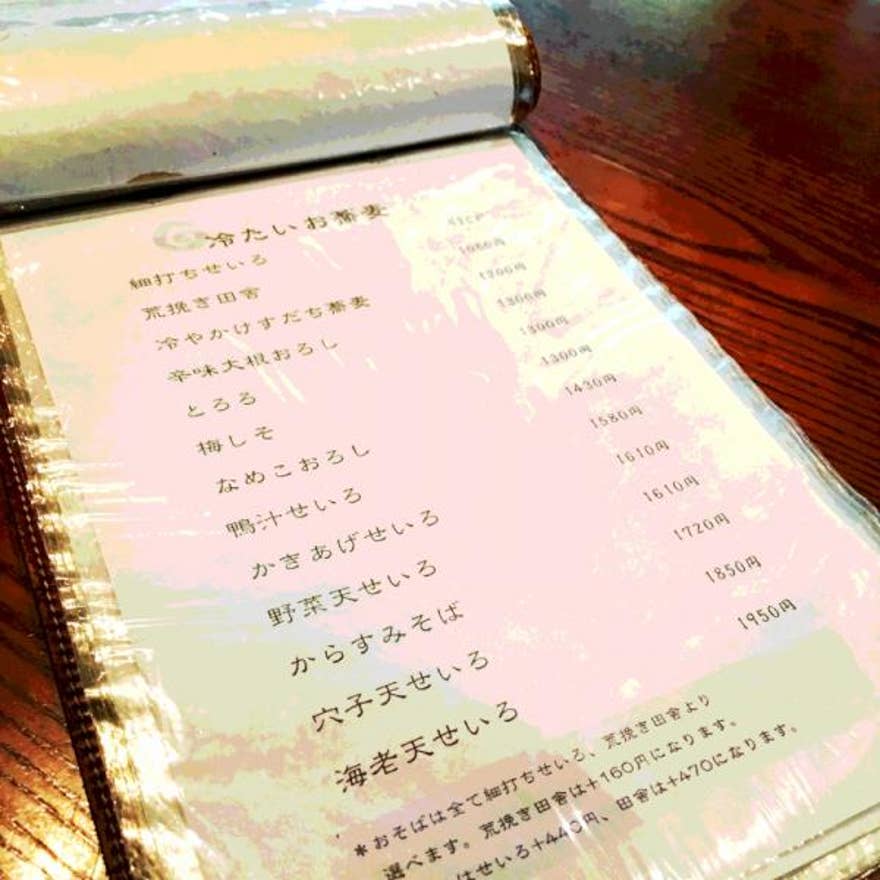 冷たいお蕎麦
細打ちせいろ
荒挽き田舎
冷やかけすだち蕎麦 1200円
辛味大根おろし 1300円
とろろ 1300円
梅しそ 1300円
なめこおろし 1430円
鴨汁せいろ 1580円
かきあげせいろ 1610円
野菜天せいろ 1610円
からすみそば 1720円
穴子天せいろ 1850円
海老天せいろ 1950円
*おそばは全て細打ちせいろ、荒挽き田舎より
選べます。荒挽き田舎は+160円になります。
はせいろ+440円、田舎は+470になります。